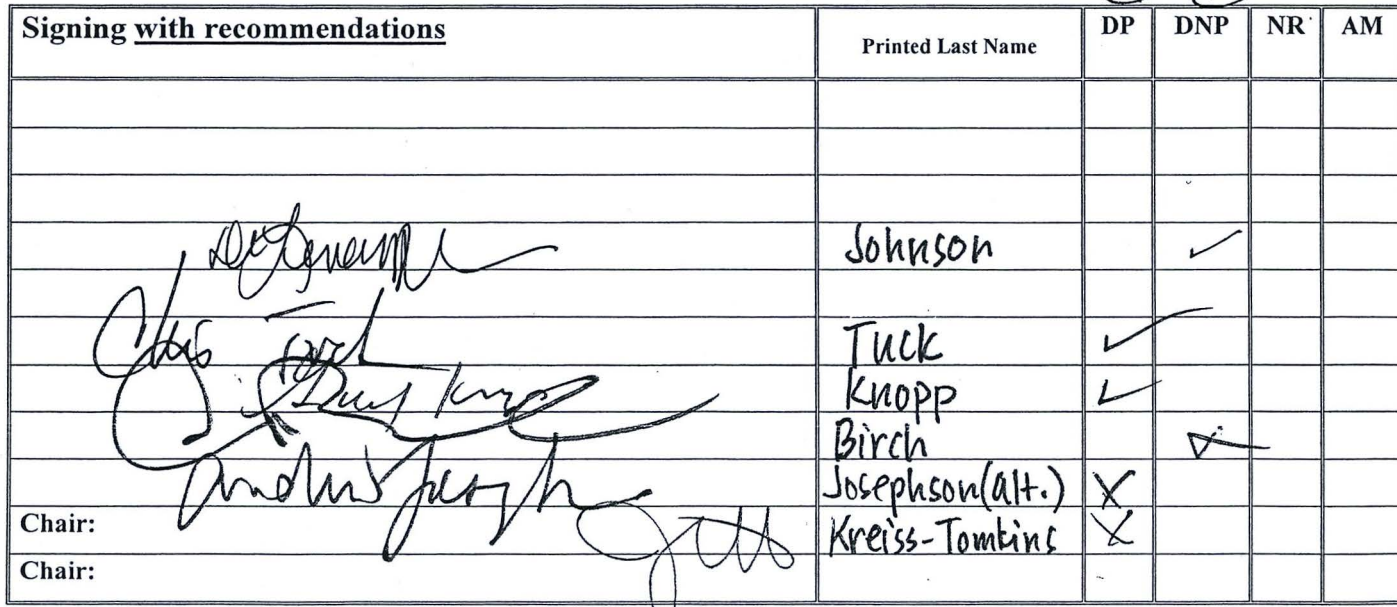 Signing with recommendations Printed Last Name DP DNP NR AM
Johnson ✓
Chris Tuck Tuck ✓
Knopp ✓
Birch ✓
Josephson (alt.) X
Chair: Kreiss-Tomkins X
Chair: